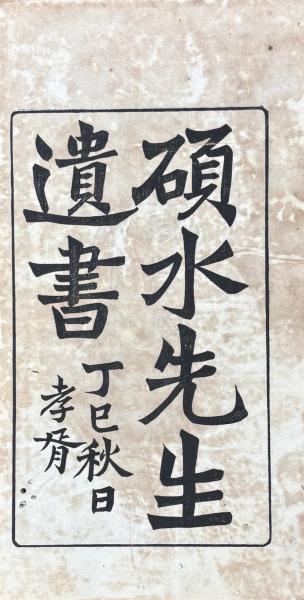 碩水先生
遺書
丁巳秋日
孝胥